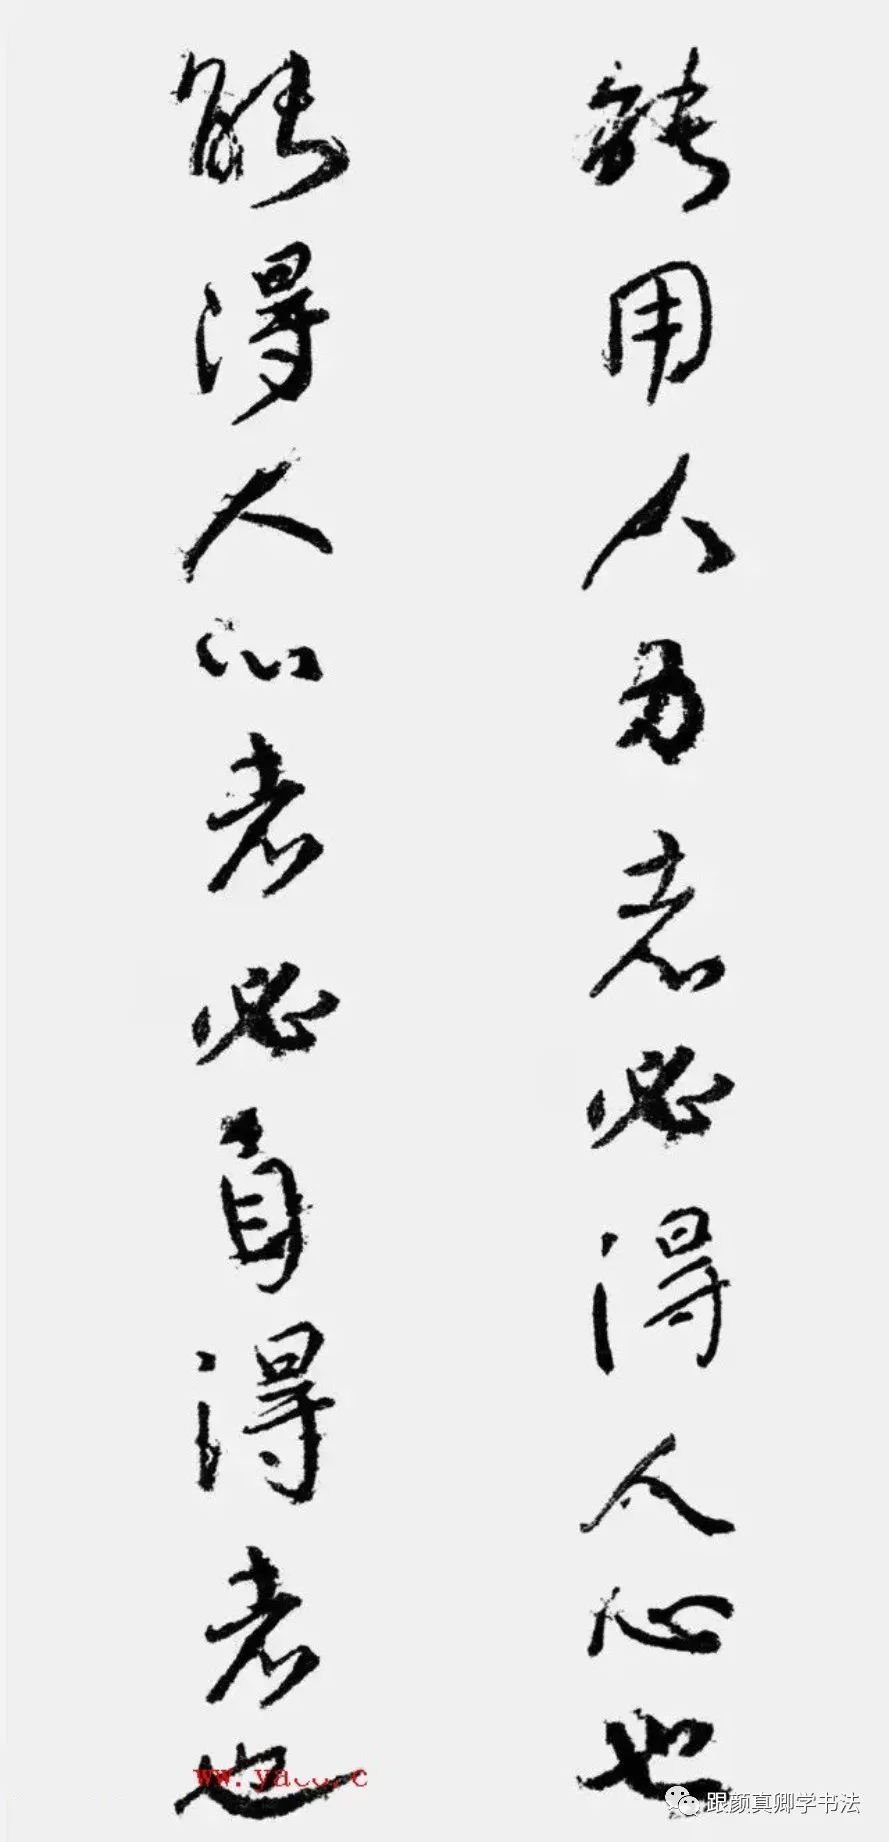 能用人力者必得人心也
能得人心者必自得者也
跟颜真卿学书法